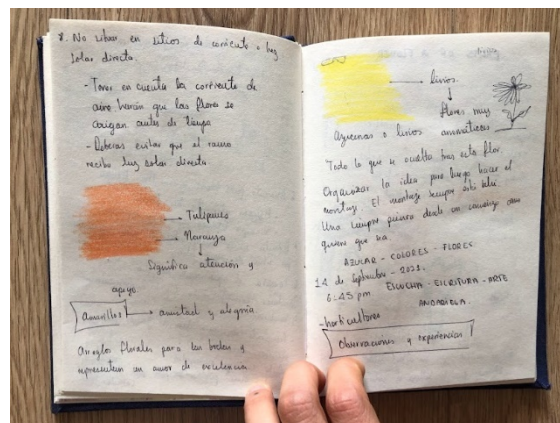 8. No ubicar en sitios de corriente o luz
solar directa.
- Tener en cuenta la corriente de
aire harán que las flores se
caigan antes de tiempo
- Deberás evitar que el ramo
reciba luz solar directa
Tulipanes
Naranja
Significa atención y
apoyo
Amarillos amistad y alegría
Arreglos florales para las bodas y
representan un amor de excelencia.
lirios.
flores muy
Azucenas o lirios aromáticas
Todo lo que se oculta tras esta flor.
Organizar la idea para luego hacer el
montaje. El montaje siempre
Uno siempre quiere desde un comienzo como
quiere que sea.
AZUCAR - COLORES - FLORES
14 de Septiembre - 2021.
6:45 pm ESCUCHA - ESCRITURA - ARTE
ANDARIELA.
- horticultores
Observaciones y experiencias